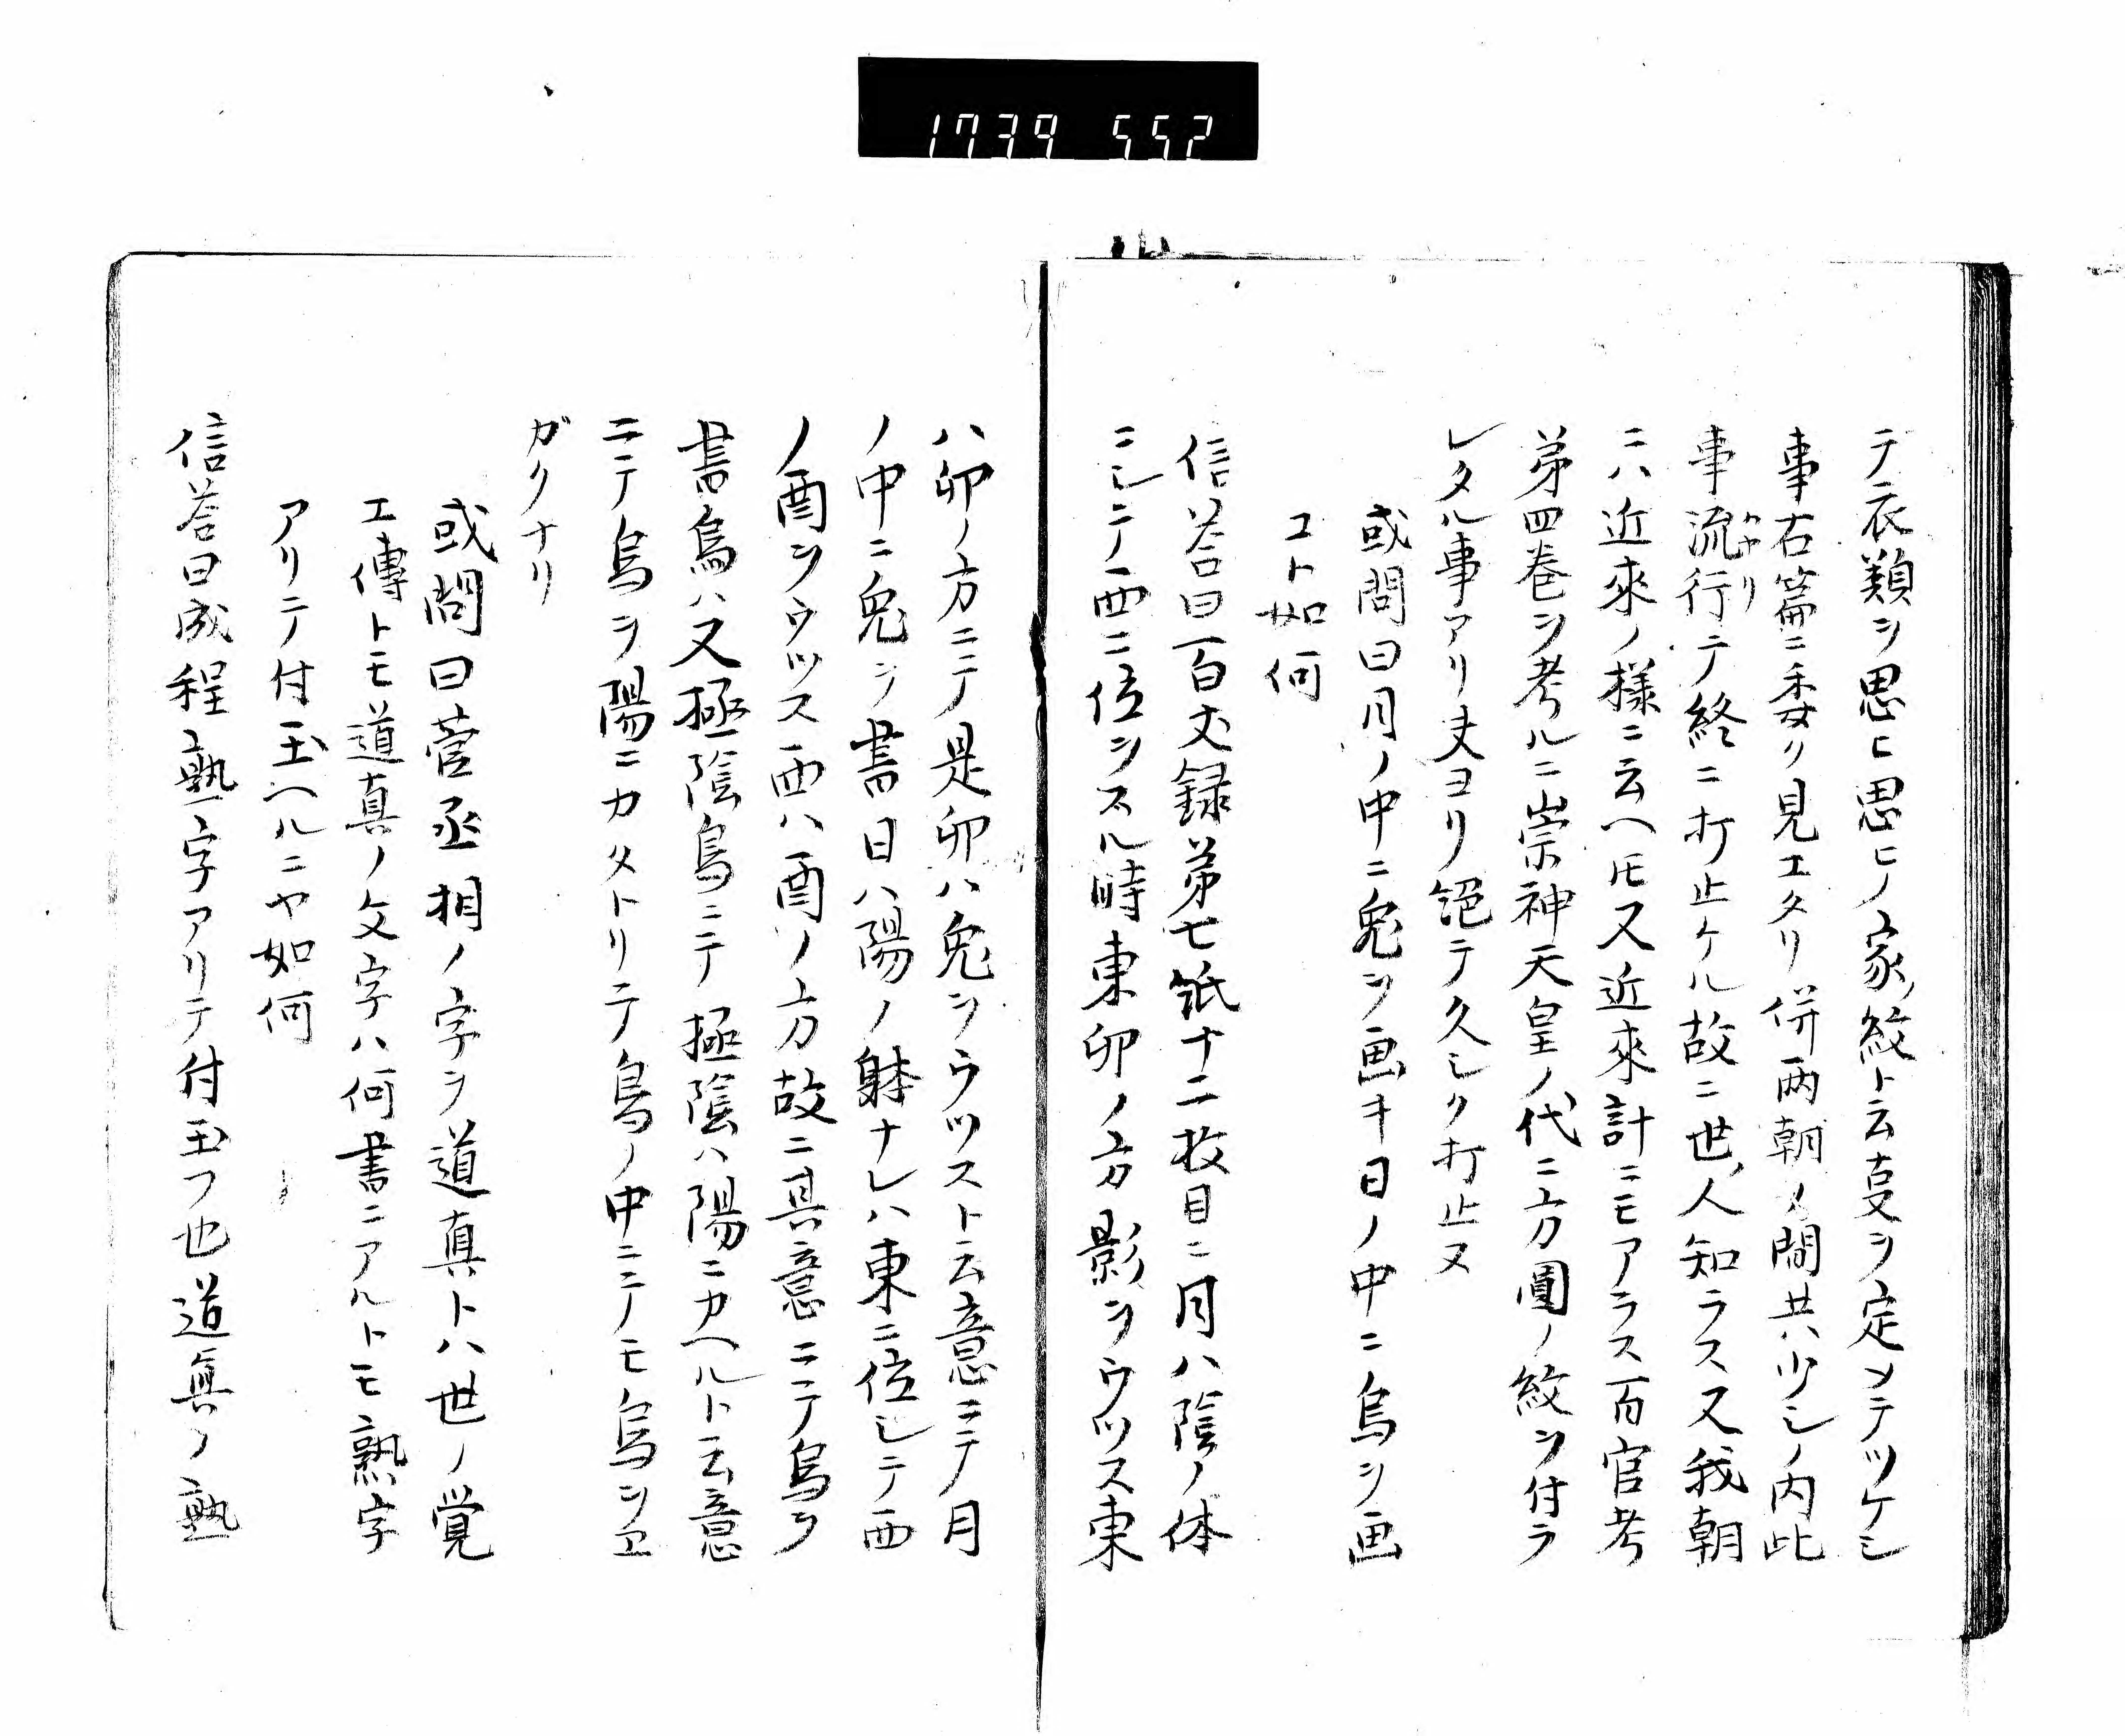 1739 552
テ衣類ヲ思ヒ思ヒノ家ノ紋ト云叓ヲ定メテツケシ
事右篇ニ委リ見エタリ併両朝ノ間共ハ少シノ内此
事流行テ終ニ打止ケル故ニ世ノ人知ラス又我朝
ハヤリ
ニハ近來ノ樣ニ云ヘ𪜈又近來計ニモアラス百官考
苐四巻ヲ考ルニ崇神天皇ノ代ニ方圓ノ紋ヲ付ラ
レタル事アリ丈ヨリ絕テ久シク打止ヌ
或問曰月ノ中ニ兔ヲ画キ日ノ中ニ烏ヲ画
コト如何
信荅曰百丈録苐七紙十二枚目ニ月ハ陰ノ体
ニシテ西ニ位ヲスル時東卯ノ方影ヲウツス東
ハ卯ノ方ニテ是卯ハ兔ヲウツスト云意ニテ月
ノ中ニ兔ヲ書日ハ陽ノ躰ナレハ東ニ位シテ西
ノ酉ヲウツス西ハ酉ノ方故ニ其意ニテ烏ヲ
書烏ハ又極陰鳥ニテ極陰ハ陽ニカヘルト云意
ニテ烏ヲ陽ニカタトリテ鳥ノ中ニテモ烏ヲヱ
ガクナリ
或問曰菅丞相ノ字ヲ道真トハ世ノ覚
エ傳トモ道真ノ文字ハ何書ニアルトモ熟字
アリテ付玉ヘルニヤ如何
信荅曰成程熟字アリテ付玉フ也道真ノ熟